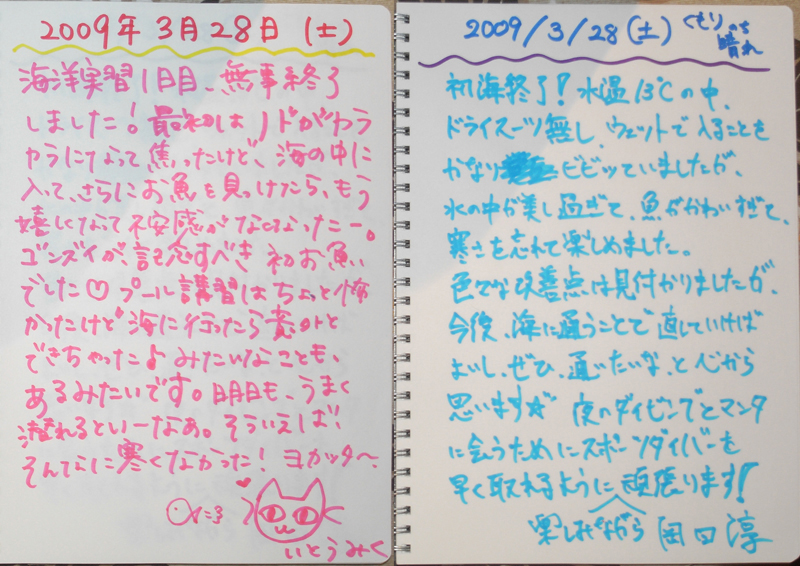 2009年 3月 28日 (土)
海洋実習1日目、無事終了
しました！最初はノドがカラ
カラになって焦ったけど、海の中に
入って、さらにお魚を見つけたら、もう
嬉しくなって不安感がなくなったニー。
ゴンズイが記念すべき初お魚
でした♡ プール講習はちょっと怖
かったけど海に行ったら意外と
できちゃった♪ みたいなことも、
あるみたいです。明日も、うまく
潜れるといーなぁ。そういえば！
そんなに寒くなかった！ヨカッタ〜。
いとうみく
2009/3/28(土) くもり のち 晴れ
初海終了！水温13℃の中、
ドライスーツ無し、ウェットで入ることを
かなり ビビッていましたが、
水の中が美し過ぎて、魚がかわいすぎて、
寒さを忘れて楽しめました。
色々な改善点は見付かりましたが、
今後、海に通うことで直していけば
よいし、ぜひ、通いたいな、と心から
思います☆ 夜のダイビングとマンタ
に会うためにスポーツダイバーを
早く取れるように頑張ります！
楽しみながら
岡田 淳